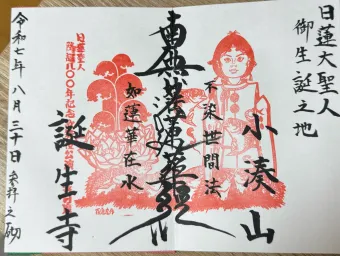 日蓮大聖人
御生誕之地
小湊山
不染世間法
南無妙法蓮華経
如蓮華在水
誕生寺
令和七年八月三十日 参拝之砌
日蓮聖人
降誕八〇〇年記念